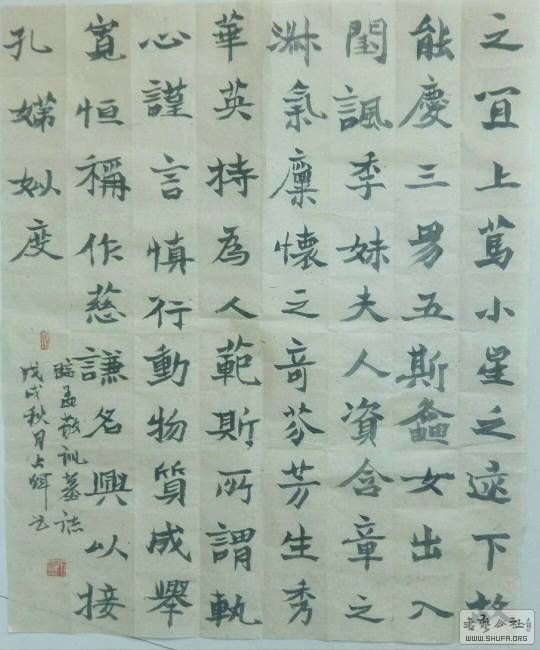 之冝上篤小星之逺下故
能慶三男五斯螽女出入
閨諷季妹夫人資含章之
氣廪懷之奇芬芳生秀
華英持為人範斯所謂軌
心謹言慎行動物質成舉
寛恒稱作慈謙名興以接
孔娣姒度
臨孟敬訓墓誌
戊戌秋月
書藝公社
WWW.SHUFA.ORG